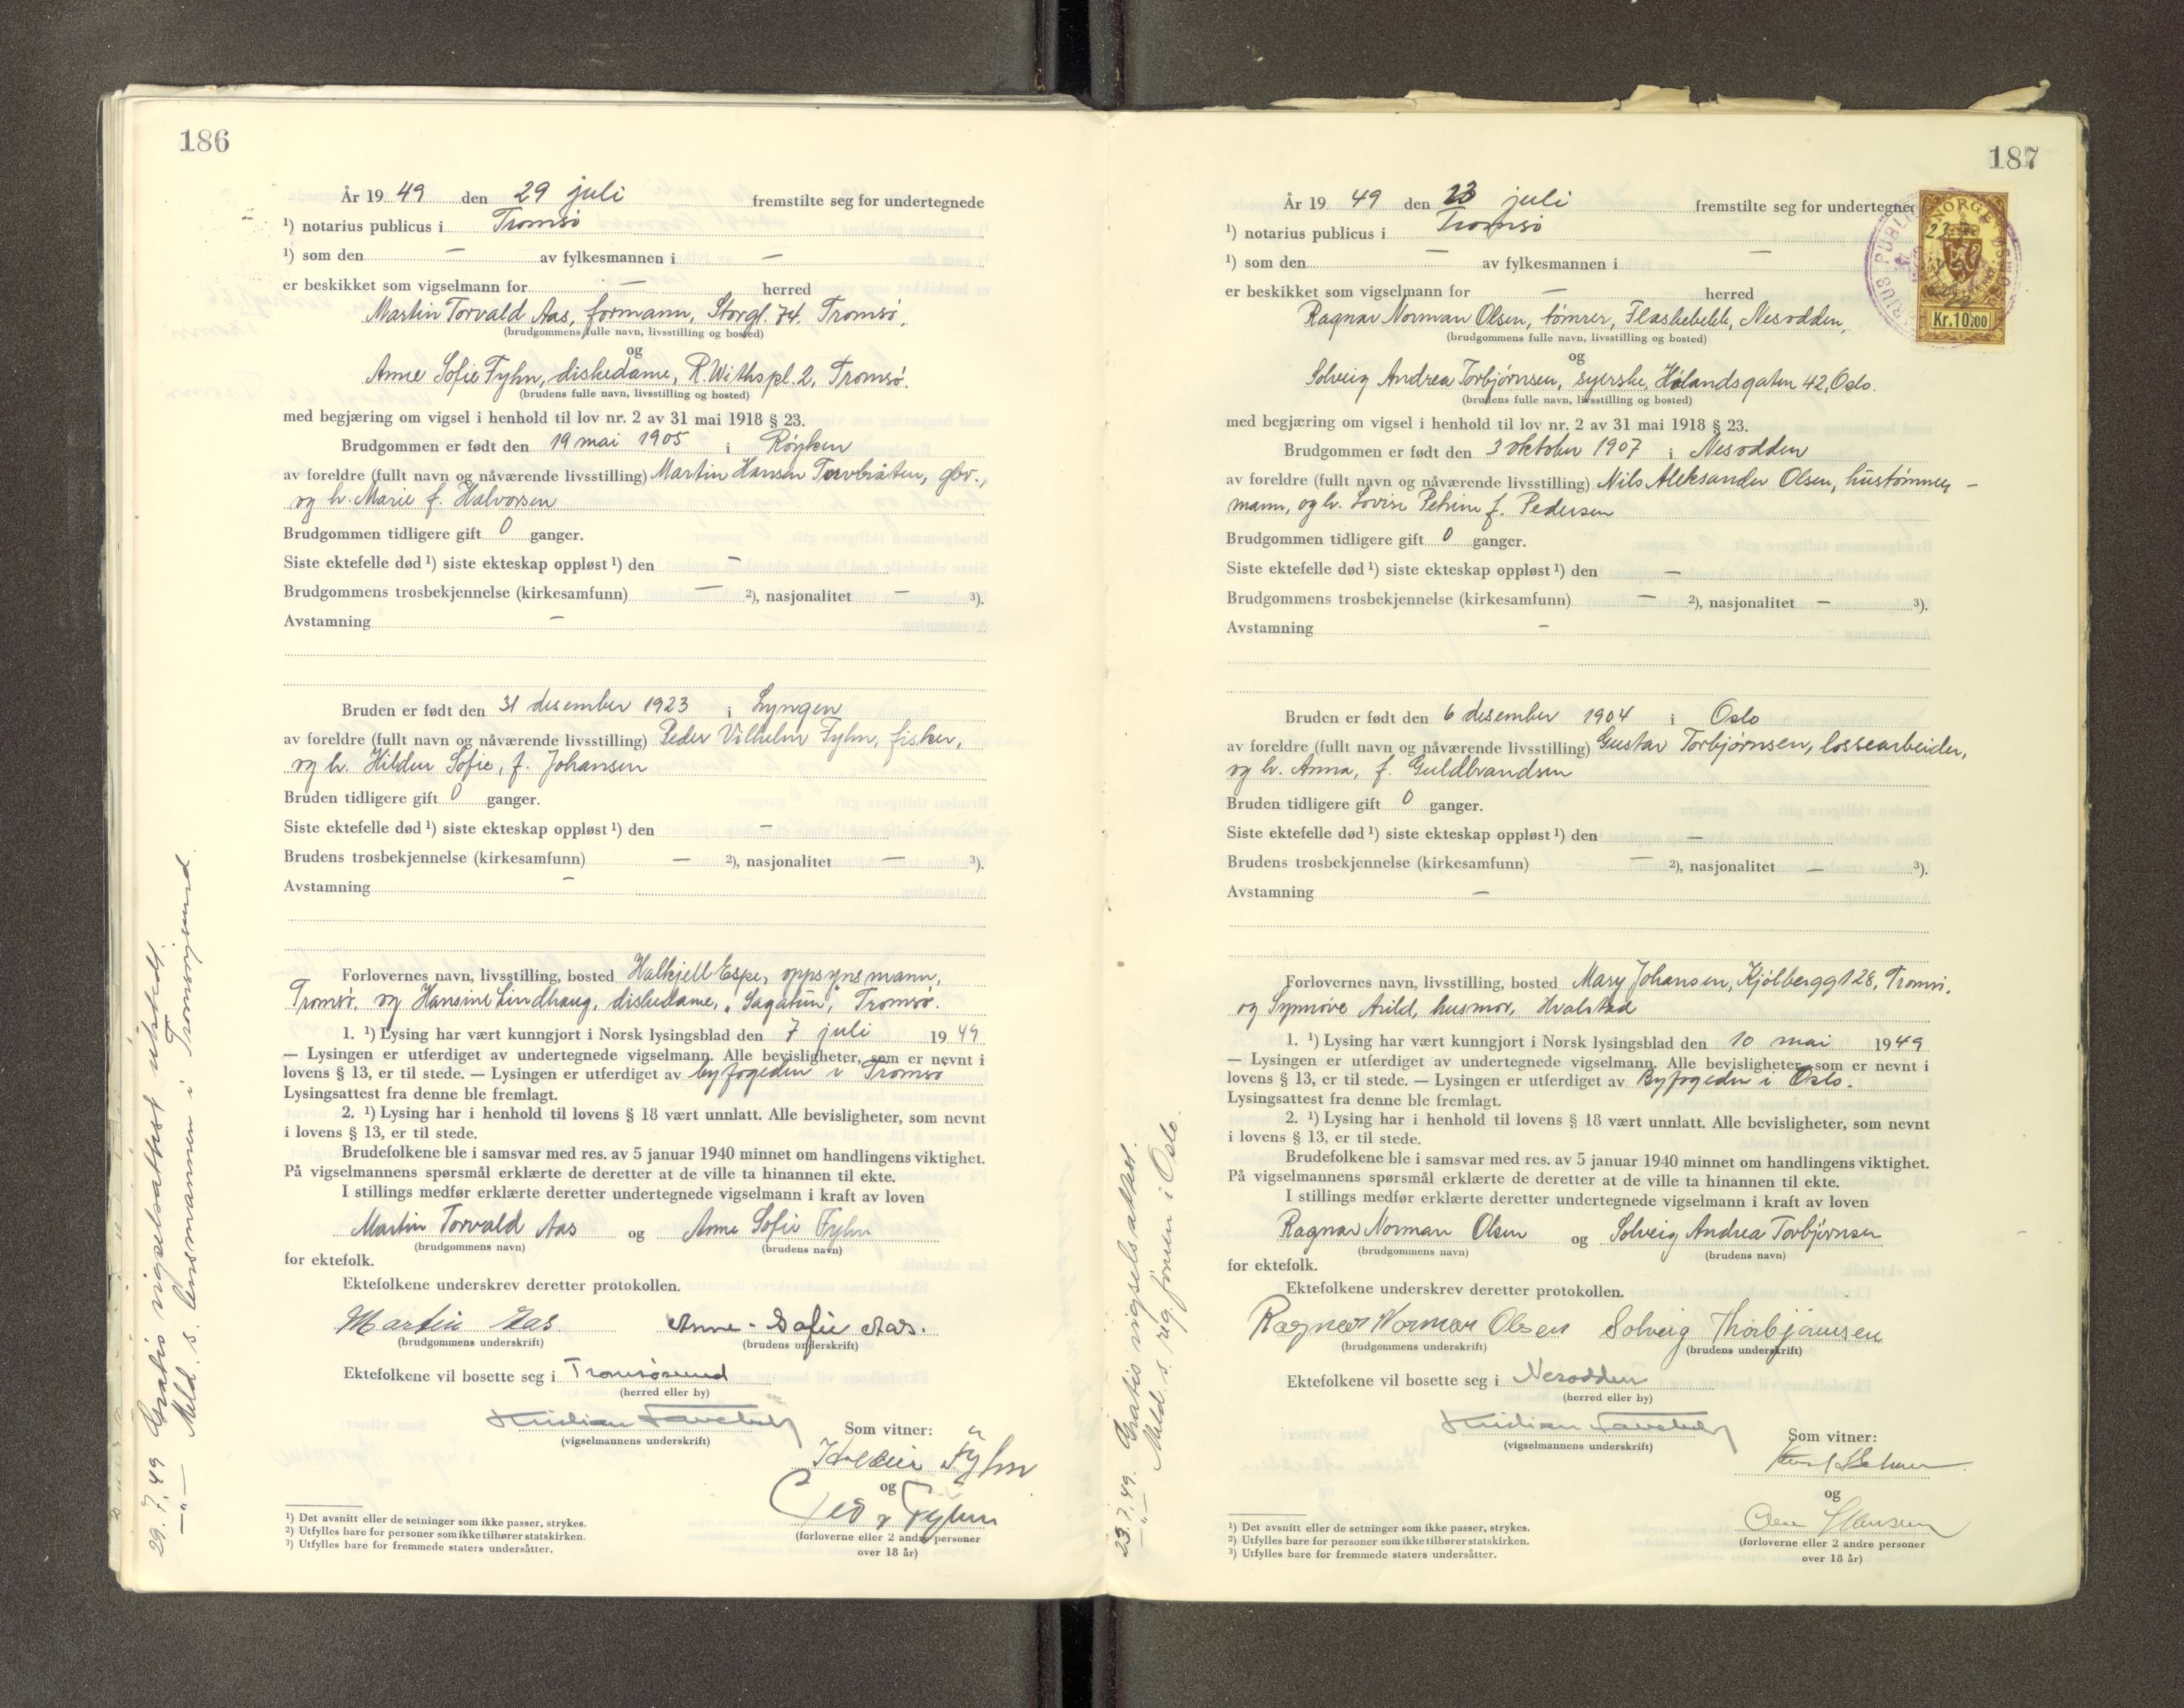 186
År 19 49 den 29 juli fremstilte seg for undertegnede
¹) notarius publicus i Tromsø
¹) som den — av fylkesmannen i —
er beskikket som vigselmann for — herred
Martin Torvald Aas, formann, Storgt. 74, Tromsø,
(brudgommens fulle navn, livsstilling og bosted)
og
Anne Sofie Fyhn, diskedame, R. Withspl. 2, Tromsø.
(brudens fulle navn, livsstilling og bosted)
med begjæring om vigsel i henhold til lov nr. 2 av 31 mai 1918 § 23.
Brudgommen er født den 19 mai 1905 i Røyken
av foreldre (fullt navn og nåværende livsstilling) Martin Hansen Torvbråten, gbr.,
og h. Marie f. Halvorsen
Brudgommen tidligere gift 0 ganger.
Siste ektefelle død ¹) siste ekteskap oppløst ¹) den —
Brudgommens trosbekjennelse (kirkesamfunn) — ²), nasjonalitet — ³).
Avstamning —
Bruden er født den 31 desember 1923 i Lyngen
av foreldre (fullt navn og nåværende livsstilling) Peder Vilhelm Fyhn, fisker,
og h. Hilder Sofie, f. Johansen
Bruden tidligere gift 0 ganger.
Siste ektefelle død ¹) siste ekteskap oppløst ¹) den —
Brudens trosbekjennelse (kirkesamfunn) — ²), nasjonalitet — ³).
Avstamning —
Forlovernes navn, livsstilling, bosted Halkjell Espe, oppsynsmann,
Tromsø, og Hansine Lindhaug, diskedame, "Sagatun", Tromsø.
1. ¹) Lysing har vært kunngjort i Norsk lysingsblad den 7 juli 19 49
— Lysingen er utferdiget av undertegnede vigselmann. Alle bevisligheter, som er nevnt i
lovens § 13, er til stede. — Lysingen er utferdiget av byfogeden i Tromsø
Lysingsattest fra denne ble fremlagt.
2. ¹) Lysing har i henhold til lovens § 18 vært unnlatt. Alle bevisligheter, som nevnt
i lovens § 13, er til stede.
Brudefolkene ble i samsvar med res. av 5 januar 1940 minnet om handlingens viktighet.
På vigselmannens spørsmål erklærte de deretter at de ville ta hinannen til ekte.
I stillings medfør erklærte deretter undertegnede vigselmann i kraft av loven
Martin Torvald Aas og Anne Sofie Fyhn
(brudgommens navn) (brudens navn)
for ektefolk.
Ektefolkene underskrev deretter protokollen.
Martin Aas. Anne-Sofie Aas.
(brudgommens underskrift) (brudens underskrift)
Ektefolkene vil bosette seg i Tromsøsund
(herred eller by)
Kristian
(vigselmannens underskrift)
Som vitner:
Fyhn
og
Fyhn
(forloverne eller 2 andre personer
over 18 år)
¹) Det avsnitt eller de setninger som ikke passer, strykes.
²) Utfylles bare for personer som ikke tilhører statskirken.
³) Utfylles bare for fremmede staters undersåtter.
29.7.49 Gratis vigselsattest utstedt.
—"— Meld. s. lensmannen i Tromsøysund
187
År 19 49 den 23 juli fremstilte seg for undertegnede
¹) notarius publicus i Tromsø
¹) som den — av fylkesmannen i —
er beskikket som vigselmann for — herred
Ragnar Norman Olsen, tømrer, Flaskebekk, Nesodden,
(brudgommens fulle navn, livsstilling og bosted)
og
Solveig Andrea Torbjørnsen, syerske, Hølandsgaten 42, Oslo.
(brudens fulle navn, livsstilling og bosted)
med begjæring om vigsel i henhold til lov nr. 2 av 31 mai 1918 § 23.
Brudgommen er født den 3 oktober 1907 i Nesodden
av foreldre (fullt navn og nåværende livsstilling) Nils Aleksander Olsen, hustømmer-
mann, og h. Lovise Petrine f. Pedersen
Brudgommen tidligere gift 0 ganger.
Siste ektefelle død ¹) siste ekteskap oppløst ¹) den —
Brudgommens trosbekjennelse (kirkesamfunn) — ²), nasjonalitet — ³).
Avstamning —
Bruden er født den 6 desember 1904 i Oslo
av foreldre (fullt navn og nåværende livsstilling) Gustav Torbjørnsen, lossearbeider,
og h. Anna, f. Guldbrandsen
Bruden tidligere gift 0 ganger.
Siste ektefelle død ¹) siste ekteskap oppløst ¹) den —
Brudens trosbekjennelse (kirkesamfunn) — ²), nasjonalitet — ³).
Avstamning —
Forlovernes navn, livsstilling, bosted Mary Johansen, Kjølbergg 128, Tromsø,
og Synnøve Arild, husmor, Hvalstad
1. ¹) Lysing har vært kunngjort i Norsk lysingsblad den 10 mai 1949
— Lysingen er utferdiget av undertegnede vigselmann. Alle bevisligheter, som er nevnt i
lovens § 13, er til stede. — Lysingen er utferdiget av Byfogeden i Oslo.
Lysingsattest fra denne ble fremlagt.
2. ¹) Lysing har i henhold til lovens § 18 vært unnlatt. Alle bevisligheter, som nevnt
i lovens § 13, er til stede.
Brudefolkene ble i samsvar med res. av 5 januar 1940 minnet om handlingens viktighet.
På vigselmannens spørsmål erklærte de deretter at de ville ta hinannen til ekte.
I stillings medfør erklærte deretter undertegnede vigselmann i kraft av loven
Ragnar Norman Olsen og Solveig Andrea Torbjørnsen
(brudgommens navn) (brudens navn)
for ektefolk.
Ektefolkene underskrev deretter protokollen.
Ragnar Norman Olsen Solveig Thorbjørnsen
(brudgommens underskrift) (brudens underskrift)
Ektefolkene vil bosette seg i Nesodden
(herred eller by)
Kristian
(vigselmannens underskrift)
Som vitner:
og
Hansen
(forloverne eller 2 andre personer
over 18 år)
¹) Det avsnitt eller de setninger som ikke passer, strykes.
²) Utfylles bare for personer som ikke tilhører statskirken.
³) Utfylles bare for fremmede staters undersåtter.
23.7.49. Gratis vigselsattest.
—"— Meld. s. reg. føreren i Oslo.
NORGE
Kr. 10.00